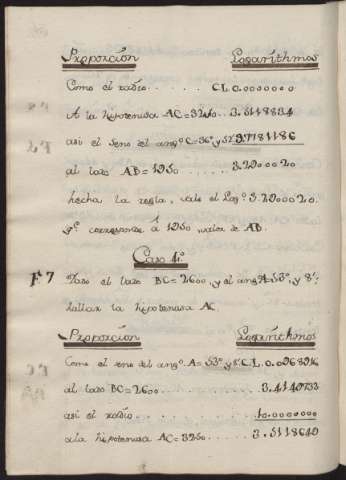 Proporción Logaríthmos
Como el radio...... C L 0.0000000
A la hipotenusa AC=3250.. 3.5118834
asi el seno el angº C=36º y 52' 9.7781186
al lado AB=1950 ...... 3.2900020
hecha la regla, sale el Logº 3.2900020.
qº corresponde á 1950 valor de AB.
Caso 4º
F 7 Dado el lado BC=2600, y el ang A=53º, y 8',
hallar la hipotenusa AC.
Proporción Logaríthmos
Como el seno del angº. A=53º, y 8'. C L. 0.0968916
al lado BC=2600............ 3.4149733
asi el radio............ 10.0000000
a la hipotenusa AC=3250...... 3.5118649